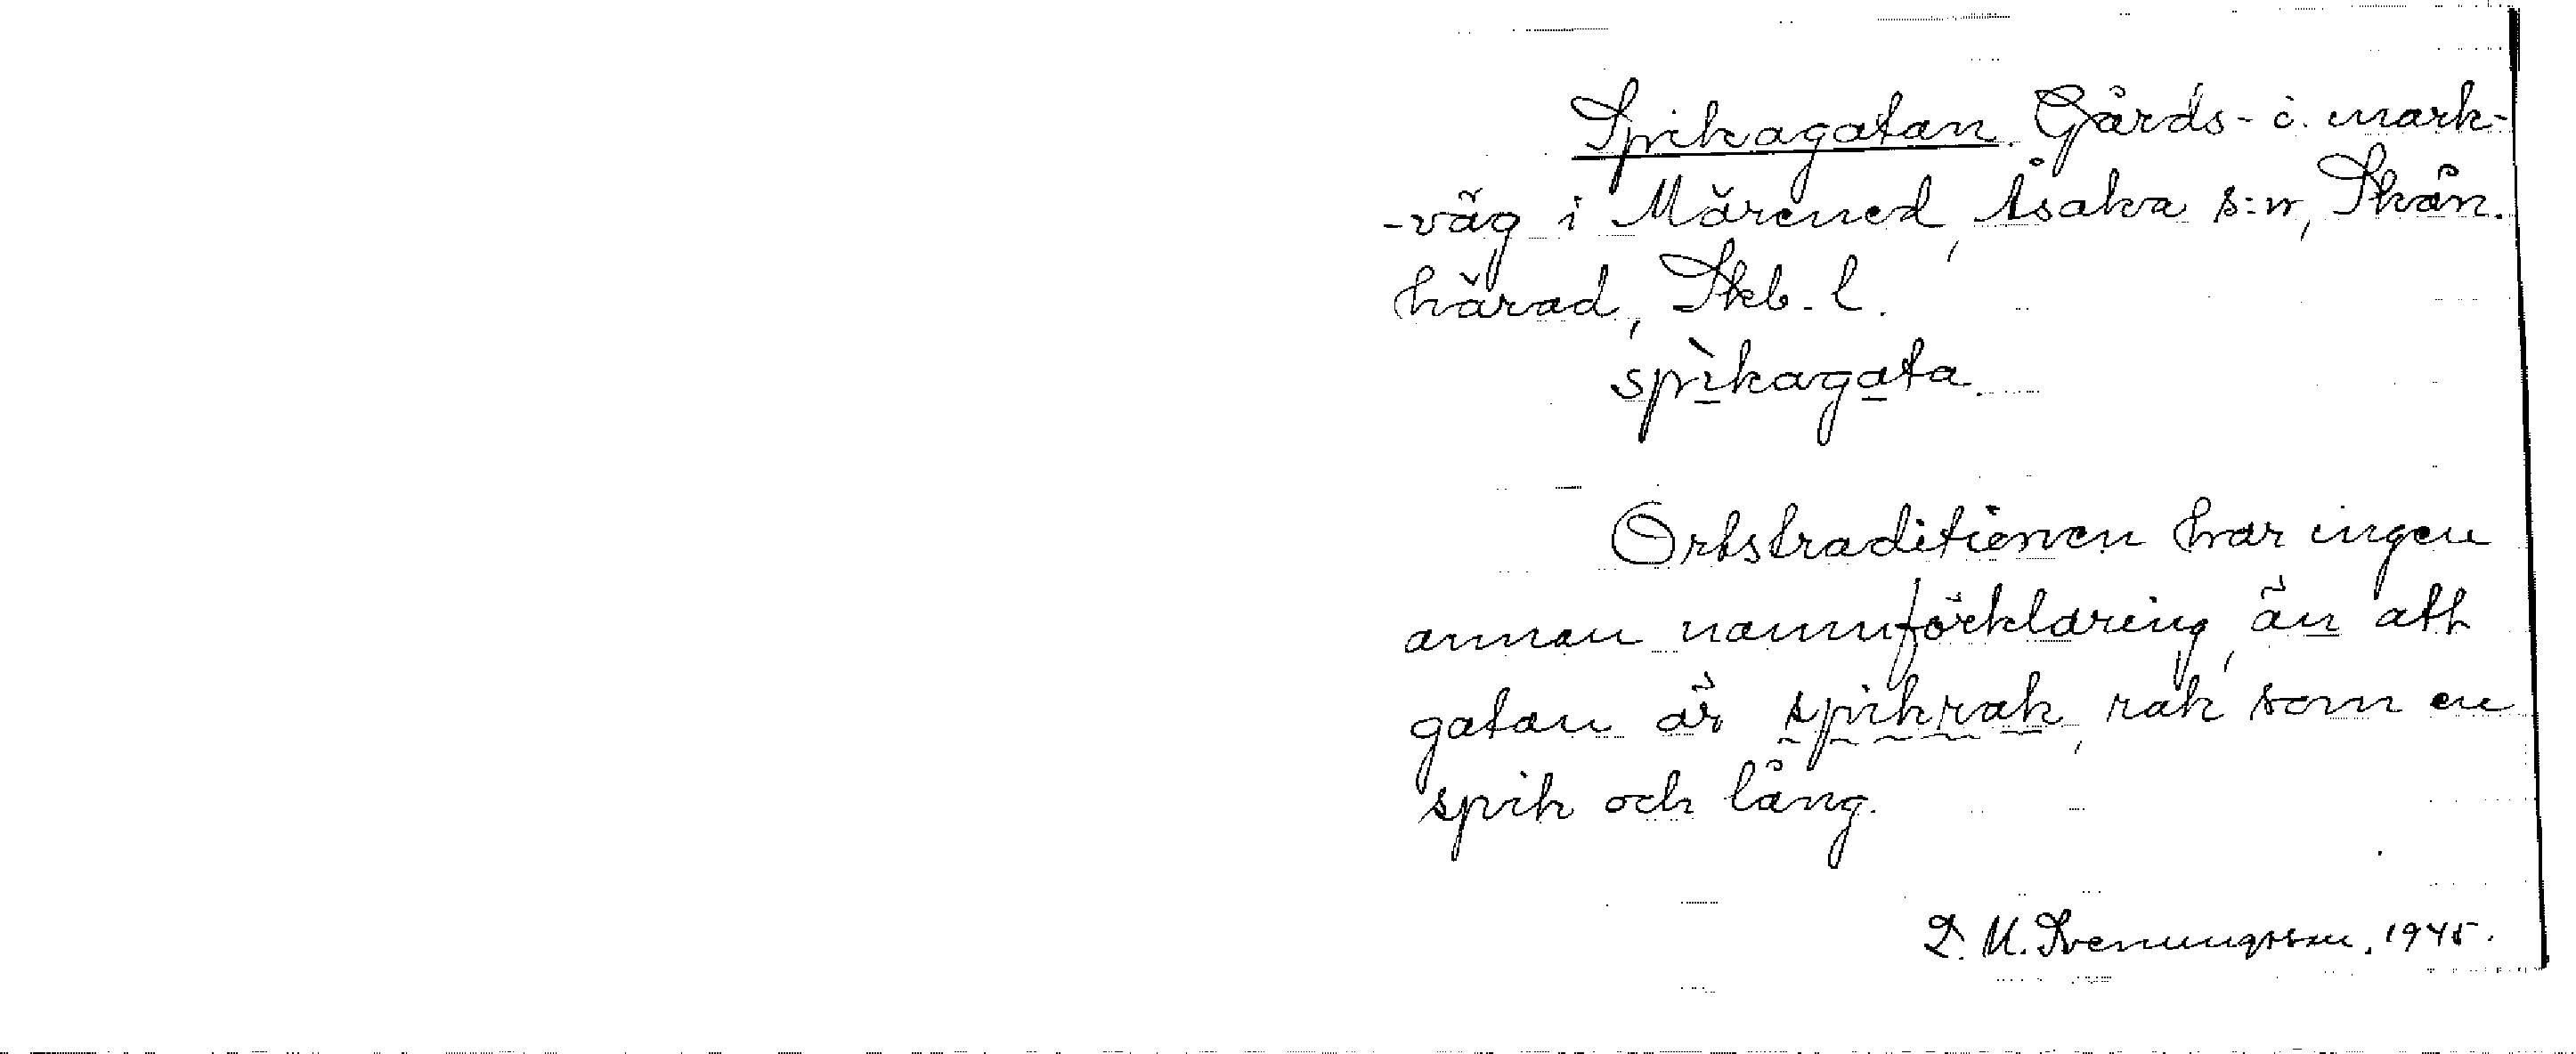 Spikagatan. Gårds- o. mark-
-väg i Märened, Åsaka s:n, Skån.
härad, Skb. l.
spìkagata.
Ortstraditionen har ingen
annan namnförklaring, än att
gatan är spikrak, rak som en
spik och lång.
D. M. Svenungsson. 1945.